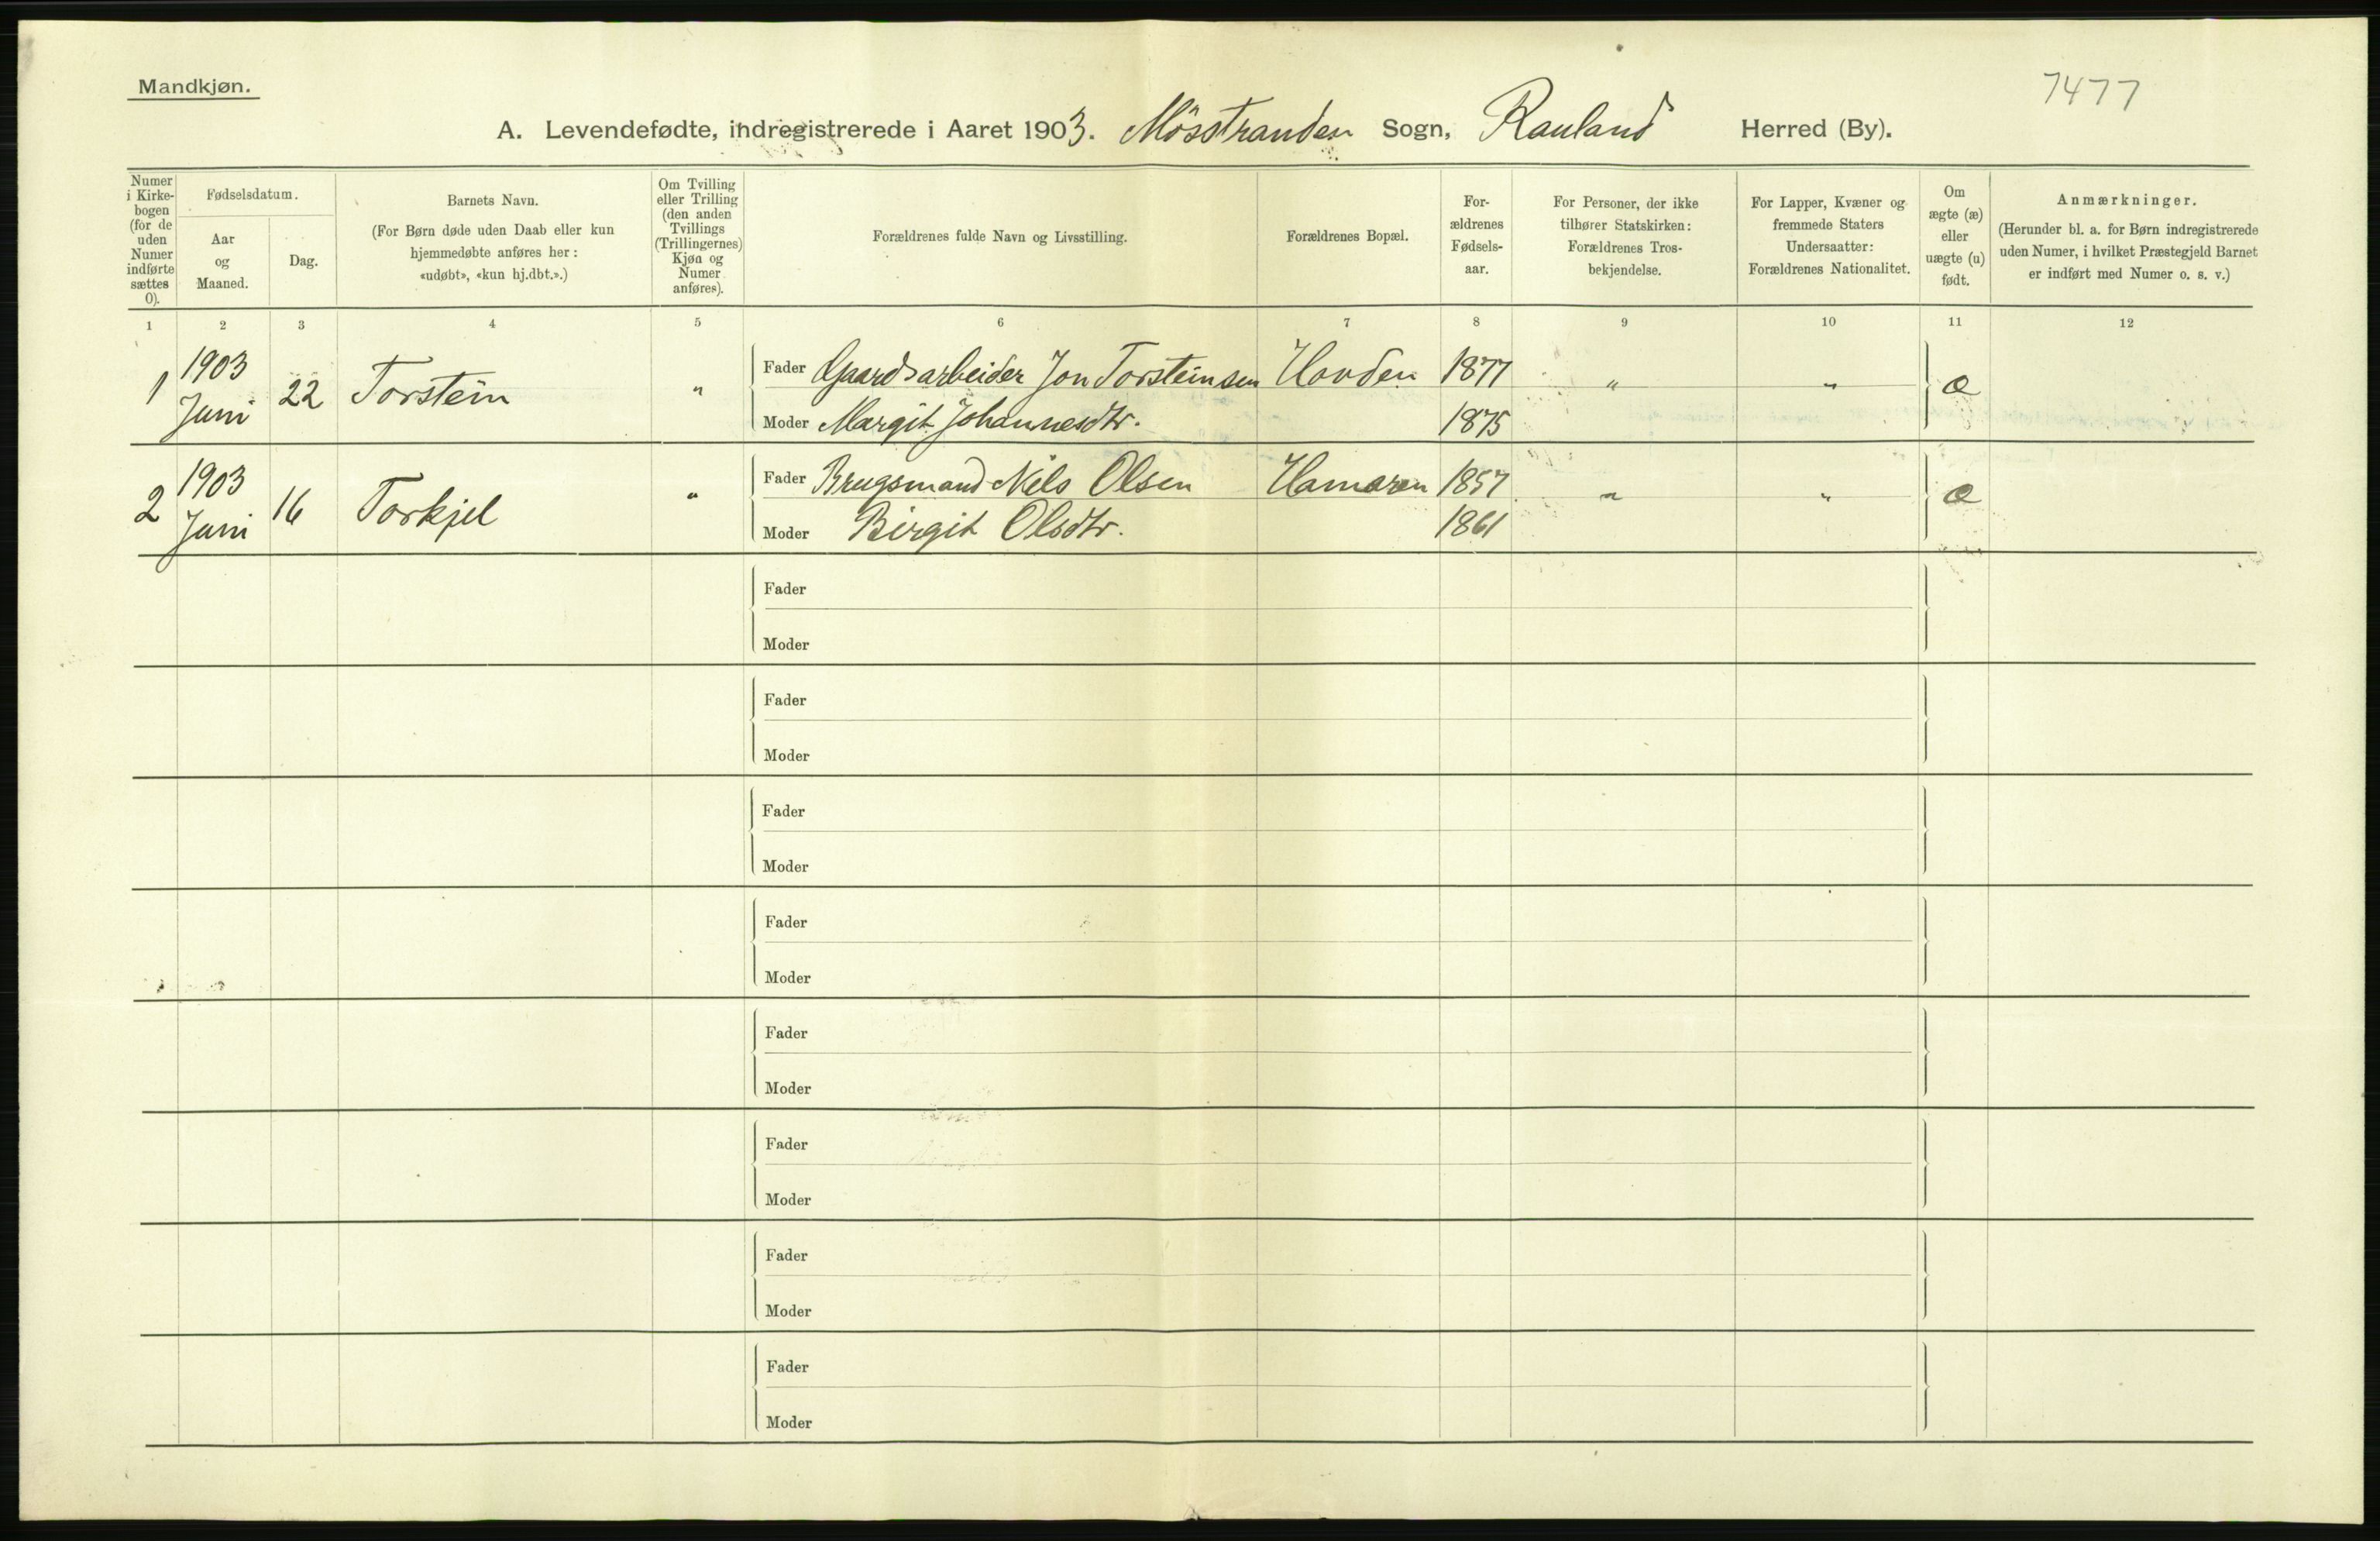 Mandkjøn.
7477
A. Levendefødte, indregistrerede i Aaret 1903. Mösstranden Sogn, Rauland Herred (By).
Numer i Kirke-bogen (for de uden Numer indførte sættes 0).
Fødselsdatum.
Aar og Maaned.
Dag.
Barnets Navn.
(For Børn døde uden Daab eller kun
hjemmedøbte anføres her:
«udøbt», «kun hj.dbt.».)
Om Tvilling
eller Trilling
(den anden
Tvillings
(Trillingernes)
Kjøn og
Numer
anføres).
Forældrenes fulde Navn og Livsstilling.
Forældrenes Bopæl.
For-
ældrenes
Fødsels-
aar.
For Personer, der ikke
tilhører Statskirken:
Forældrenes Tros-
bekjendelse.
For Lapper, Kvæner og
fremmede Staters
Undersaatter:
Forældrenes Nationalitet.
Om
ægte (æ)
eller
uægte (u)
født.
Anmærkninger.
(Herunder bl. a. for Børn indregistrerede
uden Numer, i hvilket Præstegjeld Barnet
er indført med Numer o. s. v.)
1 2 3 4 5 6 7 8 9 10 11 12
1 1903 Juni 22 Torstein " Fader Gaardsarbeider Jon Torsteinsen Hovden 1877 " " æ
Moder Margit Johannesdtr. 1875
2 1903 Juni 16 Torkjel " Fader Brugsmand Nils Olsen Hamaren 1857 " " æ
Moder Birgit Olsdtr. 1861
Fader
Moder
Fader
Moder
Fader
Moder
Fader
Moder
Fader
Moder
Fader
Moder
Fader
Moder
Fader
Moder